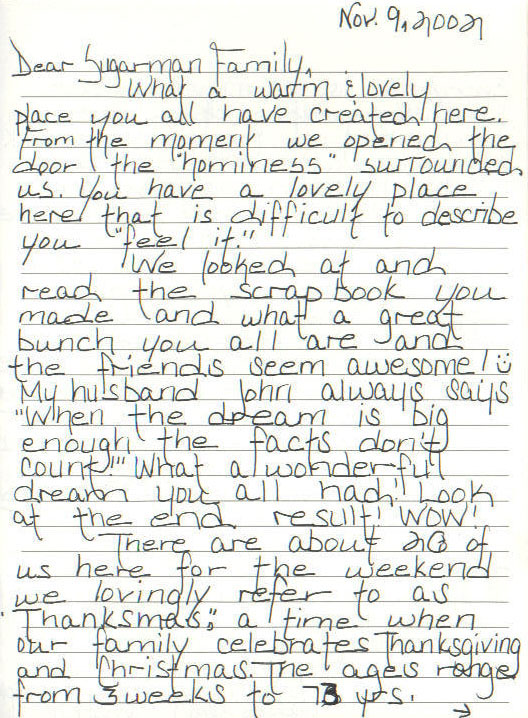 Nov. 9, 2002
Dear Sugarman Family,
What a warm & lovely
place you all have created here.
From the moment we opened the
door the "hominess" surrounded
us. You have a lovely place
here that is difficult to describe
you "feel it."
We looked at and
read the scrapbook you
made and what a great
bunch you all are and
the friends seem awesome! ☺
My husband John always says
"When the dream is big
enough the facts don't
count!!" What a wonderful
dream you all had! Look
at the end result! WOW!
There are about 20 of
us here for the weekend
we lovingly refer to as
"Thanksmas," a time when
our family celebrates Thanksgiving
and Christmas. The ages range
from 3 weeks to 73 yrs.
→